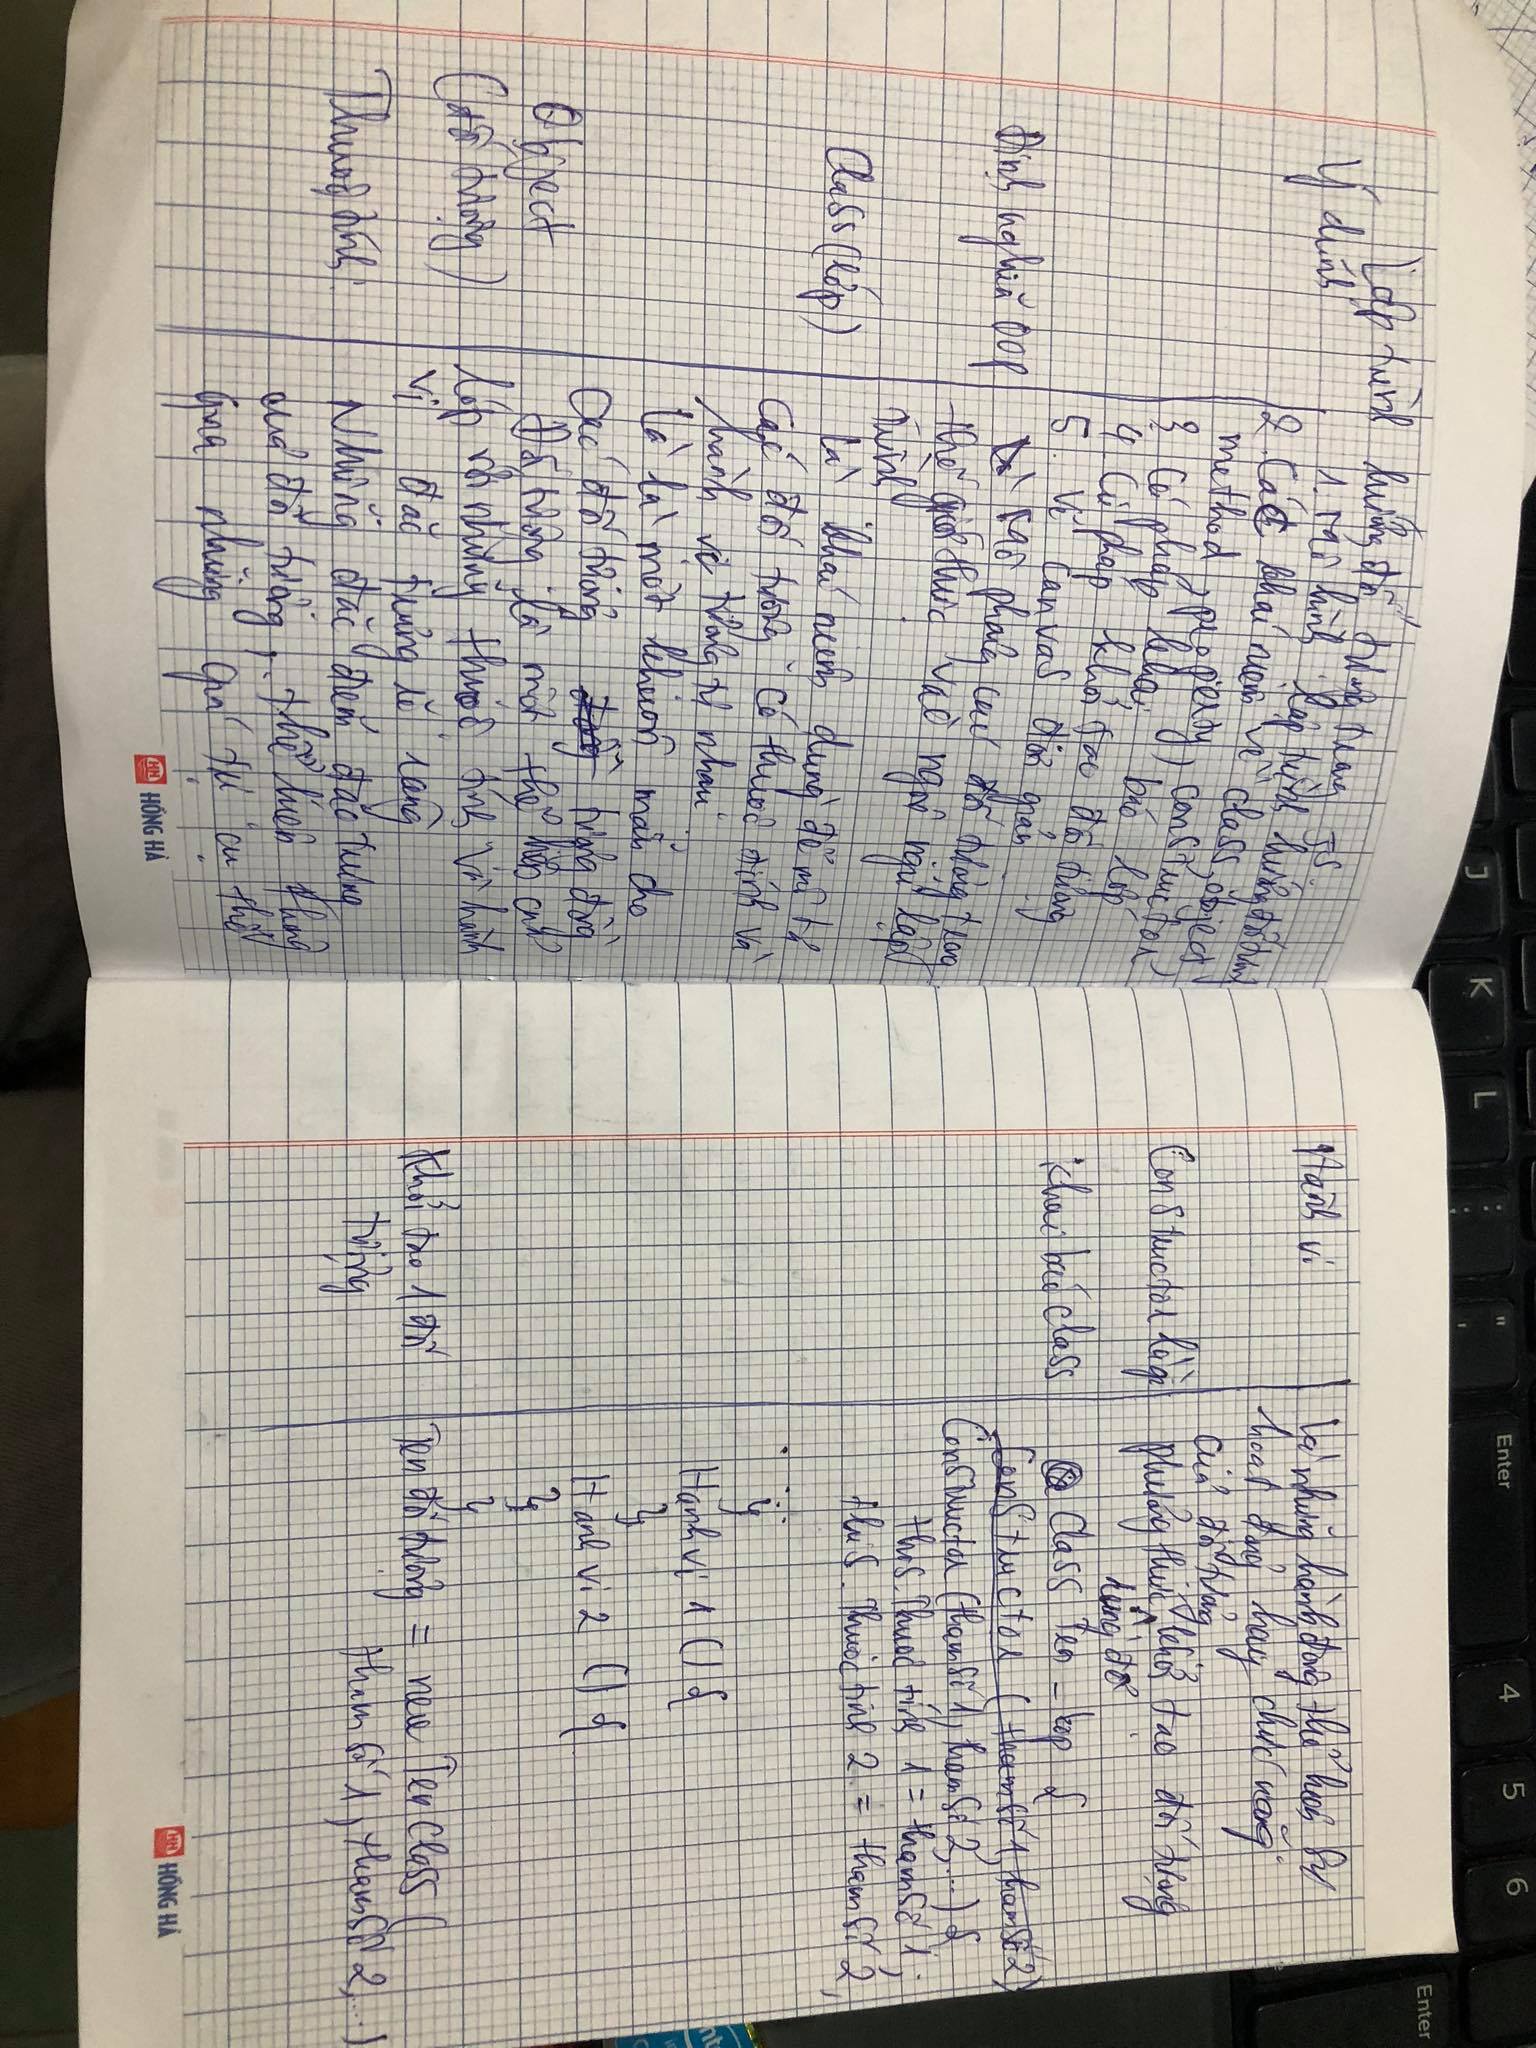 Lập trình hướng đối tượng trong JS.
Ý chính
1. Mô hình lập trình hướng đối tượng
2. Các khái niệm về class, object,
method, property, constructor)
3. Cú pháp khai báo lớp
4. Cú pháp khởi tạo đối tượng
5. Vẽ canvas đơn giản
Định nghĩa OOP
là mô phỏng các đối tượng trong
thế giới thực vào ngôn ngữ lập
trình
Class (Lớp)
là khái niệm dùng để mô tả
Các đối tượng có thuộc tính và
hành vi tương tự nhau
là một khuôn mẫu cho
Các đối tượng
Object
(Đối tượng)
Đối tượng là một thể hiện của
lớp với những thuộc tính và hành
vi đặc trưng rõ ràng
Thuộc tính
Những đặc điểm đặc trưng
của đối tượng, thể hiện thông
qua những giá trị cụ thể
HỒNG HÀ
Hành vi
là những hành động thể hiện sự
hoạt động hay chức năng
của đối tượng
Constructor là gì
phương thức khởi tạo đối tượng
Khai báo class
Class Ten_lop {
Constructor (tham số 1, tham số 2)
Constructor (tham số 1, tham số 2, ...) {
this. Thuộc tính 1 = tham số 1;
this. Thuộc tính 2 = tham số 2,
}
Hanh vi 1 () {
}
Hanh vi 2 () {
}
}
Khởi tạo 1 đối
tượng
Tên đối tượng = new Ten class (
tham số 1, tham số 2, ...)
HỒNG HÀ
J
K
L
:
;
"
'
Enter
4
5
6
Enter